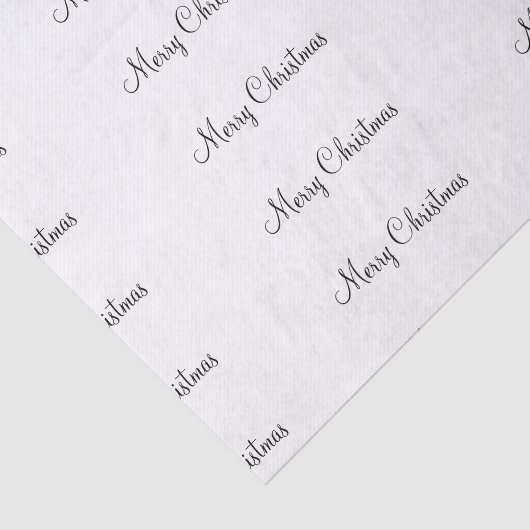 Merry Christmas
Merry Christmas
Merry Christmas
Merry Christmas
istmas
istmas
istmas
istmas